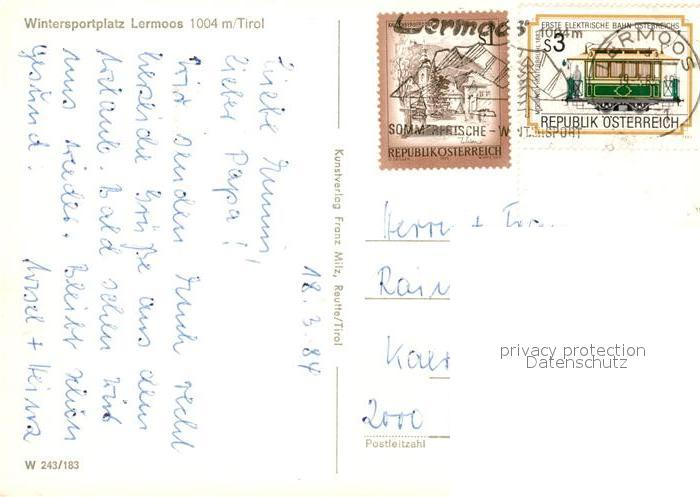 Wintersportplatz Lermoos 1004 m/Tirol
18.3.84
Liebe Mimi!
Lieber Papa!
Wir senden Euch recht
herzliche Grüße aus dem
Urlaub. Bald sehen wir
uns wieder. Bleibt schön
gesund!
Kunstverlag Franz Milz, Reutte/Tirol
W 243/183
Lermoos
1004m
SOMMERFRISCHE - WINTERSPORT
LERMOOS
S1
REPUBLIK ÖSTERREICH
ERSTE ELEKTRISCHE BAHN ÖSTERREICHS
S3
REPUBLIK ÖSTERREICH
Herrn +
2000
Postleitzahl
privacy protection
Datenschutz